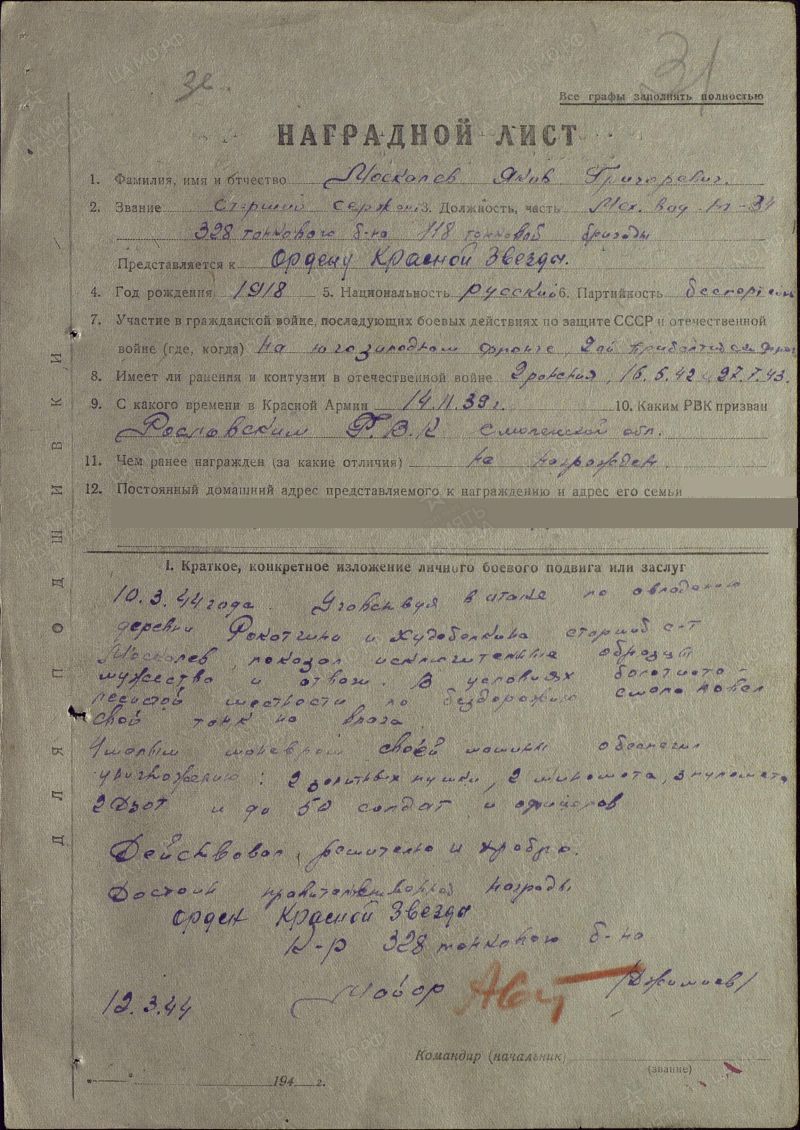 31
Все графы заполнять полностью
НАГРАДНОЙ ЛИСТ
1. Фамилия, имя и отчество Москалев Яков Григорович.
2. Звание Старший сержант 3. Должность, часть Мех. вод. Т-34
328 танкового б-на 118 танковой бригады
Представляется к Ордену Красной Звезды.
4. Год рождения 1918 5. Национальность русский 6. Партийность беспартийн
7. Участие в гражданской войне, последующих боевых действиях по защите СССР и отечественной
войне (где, когда) На югозападном фронте, 2ой Прибалтийский фронт
8. Имеет ли ранения и контузии в отечественной войне 2 ранения, 16.5.42 и 27.7.43.
9. С какого времени в Красной Армии 14.11.39 г. 10. Каким РВК призван
Рославским Г.В.К Смоленской обл.
11. Чем ранее награжден (за какие отличия) не награжден
12. Постоянный домашний адрес представляемого к награждению и адрес его семьи
I. Краткое, конкретное изложение личного боевого подвига или заслуг
10.3.44 года. Участвуя в атаке по овладению
деревни и старший с-т
Москалев, показал исключительные образцы
мужества и отваги. В условиях болотисто-
лесистой местности по бездорожию смело повел
свой танк на врага.
маневром своей машины обеспечил
уничтожению: 2 зенитных пушки, 2 миномета, 3 пулемета
2 Дзот и до 50 солдат и офицеров
Действовал, решително и храбро.
Достоин правительственной награды
орден Красной Звезды
К-р 328 танкового б-на
Майор
12.3.44
Командир (начальник)
(звание)
194 г.
ДЛЯ ПОДШИВКИ
ЦАМО.РФ
ПАМЯТЬ НАРОДА